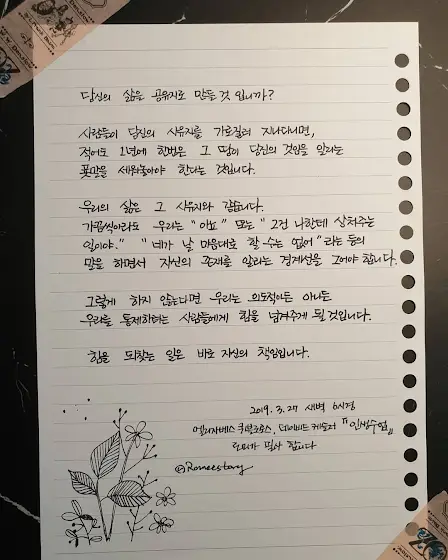 당신의 삶을 공유지로 만들 것 입니까?
사람들이 당신의 사유지를 가로질러 지나다니면,
적어도 1년에 한번은 그 땅이 당신의 것임을 알리는
푯말을 세워놓아야 한다는 것입니다.
우리의 삶은 그 사유지와 같습니다.
가끔씩이라도 우리는 "아뇨" 또는 "그건 나한테 상처주는
일이야." "네가 날 마음대로 할 수는 없어" 라는 등의
말을 하면서 자신의 존재를 알리는 경계선을 그어야 합니다.
그렇게 하지 않는다면 우리는 의도적이든 아니든
우리를 통제하려는 사람들에게 힘을 넘겨주게 될 것입니다.
힘을 되찾는 일은 바로 자신의 책임입니다.
2019. 3. 27 새벽 6시경
엘리자베스 퀴블로로스, 데이비드 케슬러 『인생수업』
로미가 필사 합니다
@Romeestory